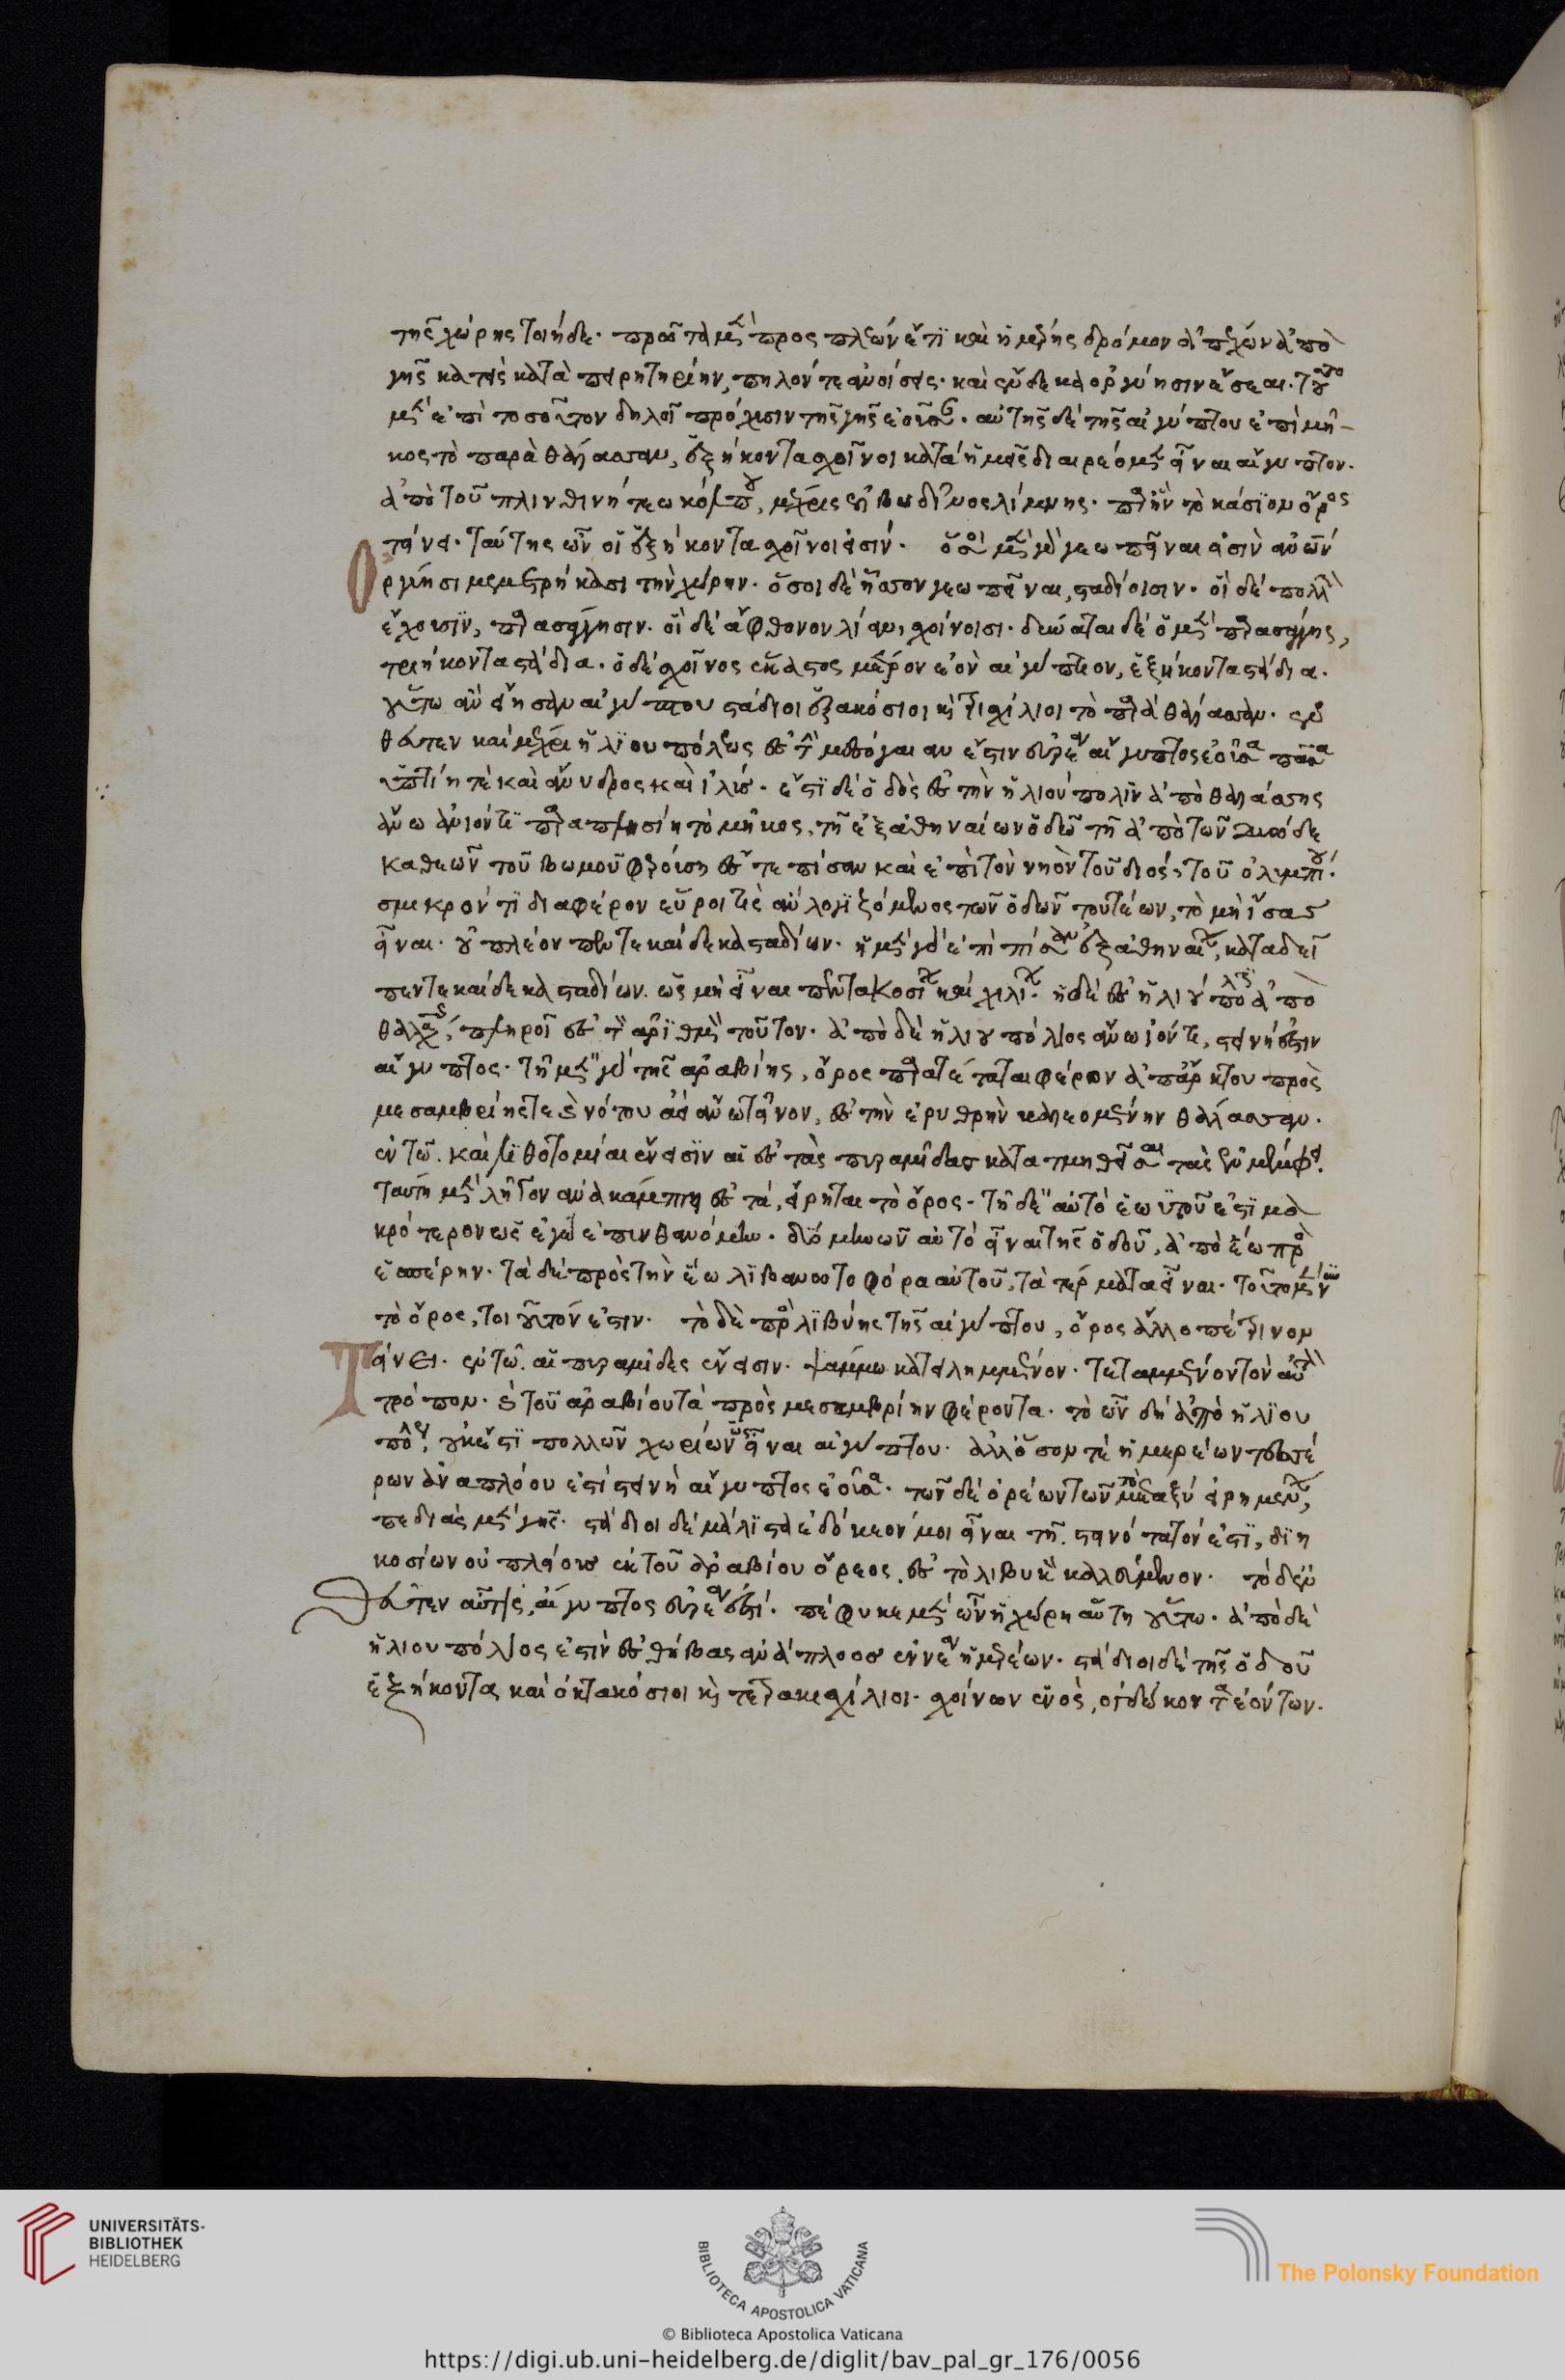 τῆς χώρης τοιήδε. πρῶτα μὲν προσπλέων ἔτι καὶ ἡμέρης δρόμον ἀπέχων ἀπὸ
γῆς κατεὶς καταπειρητηρίην, πηλόν τε ἀνοίσεις. καὶ ἐν δεκα ὀργυίῃσιν ἔσεαι. τοῦτο
μὲν ἐπὶ τοσοῦτον δηλοῖ πρόχυσιν τῆς γῆς ἐοῦσαν. αὐτῆς δὲ τῆς αἰγύπτου ἐπὶ μῆ-
κος τὸ παρὰ θάλασσαν, ἑξήκοντα σχοῖνοι κατὰ ἡμεῖς διαιρέομεν εἶναι αἴγυπτον.
ἀπὸ τοῦ πλινθινήτεω κόλπου, μέχρι σερβωνίδος λίμνης. παρ' ἣν τὸ κάσιον ὄρος
τείνει. ταύτης ὦν οἱ ἑξήκοντα σχοῖνοι εἰσίν. ὅσοι μὲν γὰρ γεωπεῖναι εἰσὶν ἀνθρώπων
Ὀργυιῇσι μεμετρήκασι τὴν χώρην. ὅσοι δὲ ἧσσον γεωπεῖναι, σταδίοισιν. οἱ δὲ πολλὴν
ἔχουσιν, παρασάγγῃσιν. οἱ δὲ ἄφθονον λίην, σχοίνοισι. δύναται δὲ ὁ μὲν παρασάγγης,
τριήκοντα στάδια. ὁ δὲ σχοῖνος ἕκαστος μέτρον ἐὸν αἰγύπτιον, ἑξήκοντα στάδια.
οὕτω ἂν εἴησαν αἰγύπτου στάδιοι ἑξακόσιοι καὶ τρισχίλιοι τὸ παρὰ θάλασσαν. ἐν
θεῦτεν καὶ μέχρι ἡλίου πόλεως ἐς τὴν μεσόγαιαν ἔστιν εὐρέα αἴγυπτος ἐοῦσα πᾶσα
ὑπτίη τὲ καὶ ἄνυδρος καὶ ἰλύς. ἔστι δὲ ὁδὸς ἐς τὴν ἡλιούπολιν ἀπὸ θαλάσσης
ἄνω ἀνιόντι παραπλησίη τὸ μῆκος, τῇ ἐξ ἀθηναίων ὁδῷ τῇ ἀπὸ τῶν δυώδε
κα θεῶν τοῦ βωμοῦ φερούσῃ ἔς τε πίσαν καὶ ἐπὶ τὸν νηὸν τοῦ διός, τοῦ ὀλυμπίου.
σμικρόν τι διαφέρον εὕροι τις ἂν λογιζόμενος τῶν ὁδῶν τουτέων, τὸ μὴ ἴσας
εἶναι. οὐ πλέον πεντεκαίδεκα σταδίων. ἡ μὲν γὰρ ἐπὶ πίσαν ἐξ ἀθηναίων, καταδεῖ
πεντεκαίδεκα σταδίων. ὡς μὴ εἶναι πεντακοσίων καὶ χιλίων. ἡ δὲ ἐς ἡλίου πόλιν ἀπὸ
θαλάσσης, πληροῖ ἐς τὸν ἀριθμὸν τοῦτον. ἀπὸ δὲ ἡλίου πόλιος ἄνω ἰόντι, στεινή ἐστιν
αἴγυπτος. τῇ μὲν γὰρ τῆς ἀραβίης, ὄρος παρατέταται φέρων ἀπ' ἄρκτου πρὸς
μεσαμβρίης τε καὶ νότου ἀεὶ ἄνω τεῖνον, ἐς τὴν ἐρυθρὴν καλεομένην θάλασσαν.
ἐν τῷ. καὶ λιθοτομίαι ἔνεισιν αἱ ἐς τὰς πυραμίδας κατατμηθεῖσαι τὰς ἐν μέμφει.
ταύτῃ μὲν λῆγον ἀνακάμπτει ἐς τὰ, εἴρηται τὸ ὄρος. τῇ δὲ αὐτὸ ἑωυτοῦ ἐστι μα
κρότερον ὡς ἐγὼ ἐπυνθανόμην. δύο μηνῶν αὐτὸ εἶναι τῆς ὁδοῦ, ἀπὸ ἠῶ πρὸς
ἑσπέρην. τὰ δὲ πρὸς τὴν ἠῶ λιβανωτοφόρα αὐτοῦ, τὰ τέρματα εἶναι. τοῦτο μέν νυν
τὸ ὄρος, τοιοῦτόν ἐστιν. τὸ δὲ πρὸς λιβύης τῆς αἰγύπτου, ὄρος ἄλλο πέτρινον
Τείνει. ἐν τῷ. αἱ πυραμίδες ἔνεισιν. ψάμμῳ κατειλημμένον. τεταμμένον τὸν αὐτὸν
τρόπον. καὶ τοῦ ἀραβίου τὰ πρὸς μεσημβρίην φέροντα. τὸ ὦν δὴ ἀπὸ ἡλίου
πόλεως, οὐκ ἔστι πολλῶν χωρίων ὡς εἶναι αἰγύπτου. ἀλλ' ὅσον τὲ ἡμερέων τεσσέ
ρων ἀναπλόου ἐστὶ στεινὴ αἴγυπτος ἐοῦσα. τῶν δὲ ὀρέων τῶν τὸ μεταξὺ εἰρημένων,
πεδιὰς μὲν γῆς. στάδιοι δὲ μάλιστα ἐδόκεόν μοι εἶναι τῇ. στεινότατόν ἐστι, διη
κοσίων οὐ πλείους ἐκ τοῦ ἀραβίου ὄρεος. ἐς τὸ λιβυκὸν καλεύμενον. τὸ δ' ἐν
θεῦτεν αὖτις, αἴγυπτος εὐρέα ἐστί. πέφυκε μέν ὦν ἡ χώρη αὕτη οὕτω. ἀπὸ δὲ
ἡλίου πόλιος ἐστὶν ἐς θήβας ἀνάπλοος ἐννέα ἡμερέων. στάδιοι δὲ τῆς ὁδοῦ
ἑξήκοντα καὶ ὀκτακόσιοι καὶ τετρακισχίλιοι. σχοίνων ἑνὸς, ὀγδώκοντα ἐόντων.
UNIVERSITÄTS-
BIBLIOTHEK
HEIDELBERG
BIBLIOTECA APOSTOLICA VATICANA
The Polonsky Foundation
© Biblioteca Apostolica Vaticana
https://digi.ub.uni-heidelberg.de/diglit/bav_pal_gr_176/0056